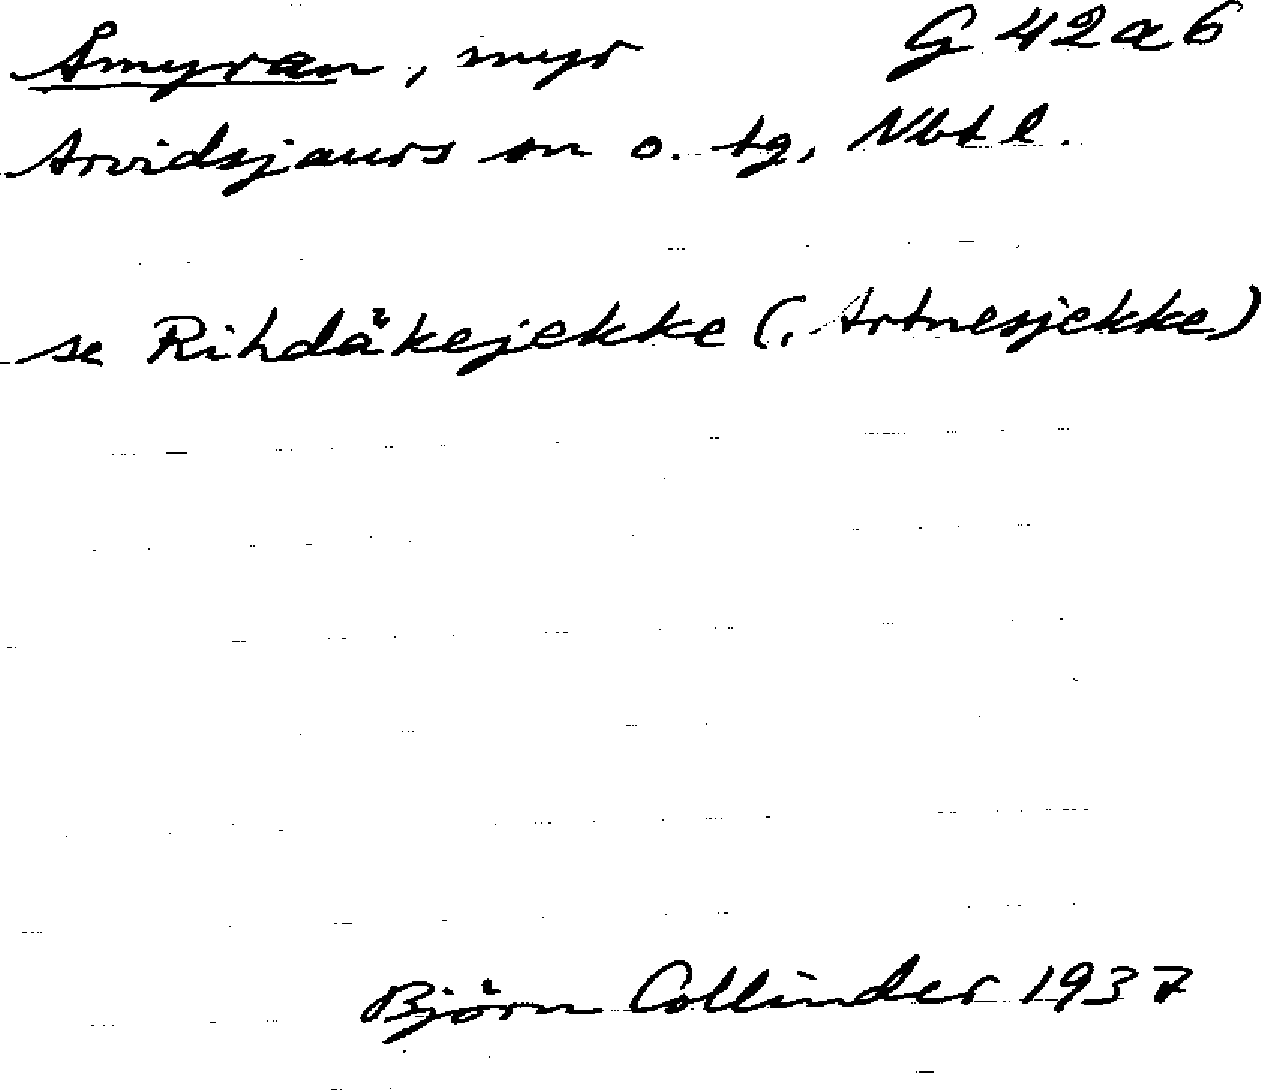 Åmyran, myr G 42a6
Arvidsjaurs sn o. tg, Nbt l.
se Rihdåkejekke (, Artnesjekke)
Björn Collinder 1937